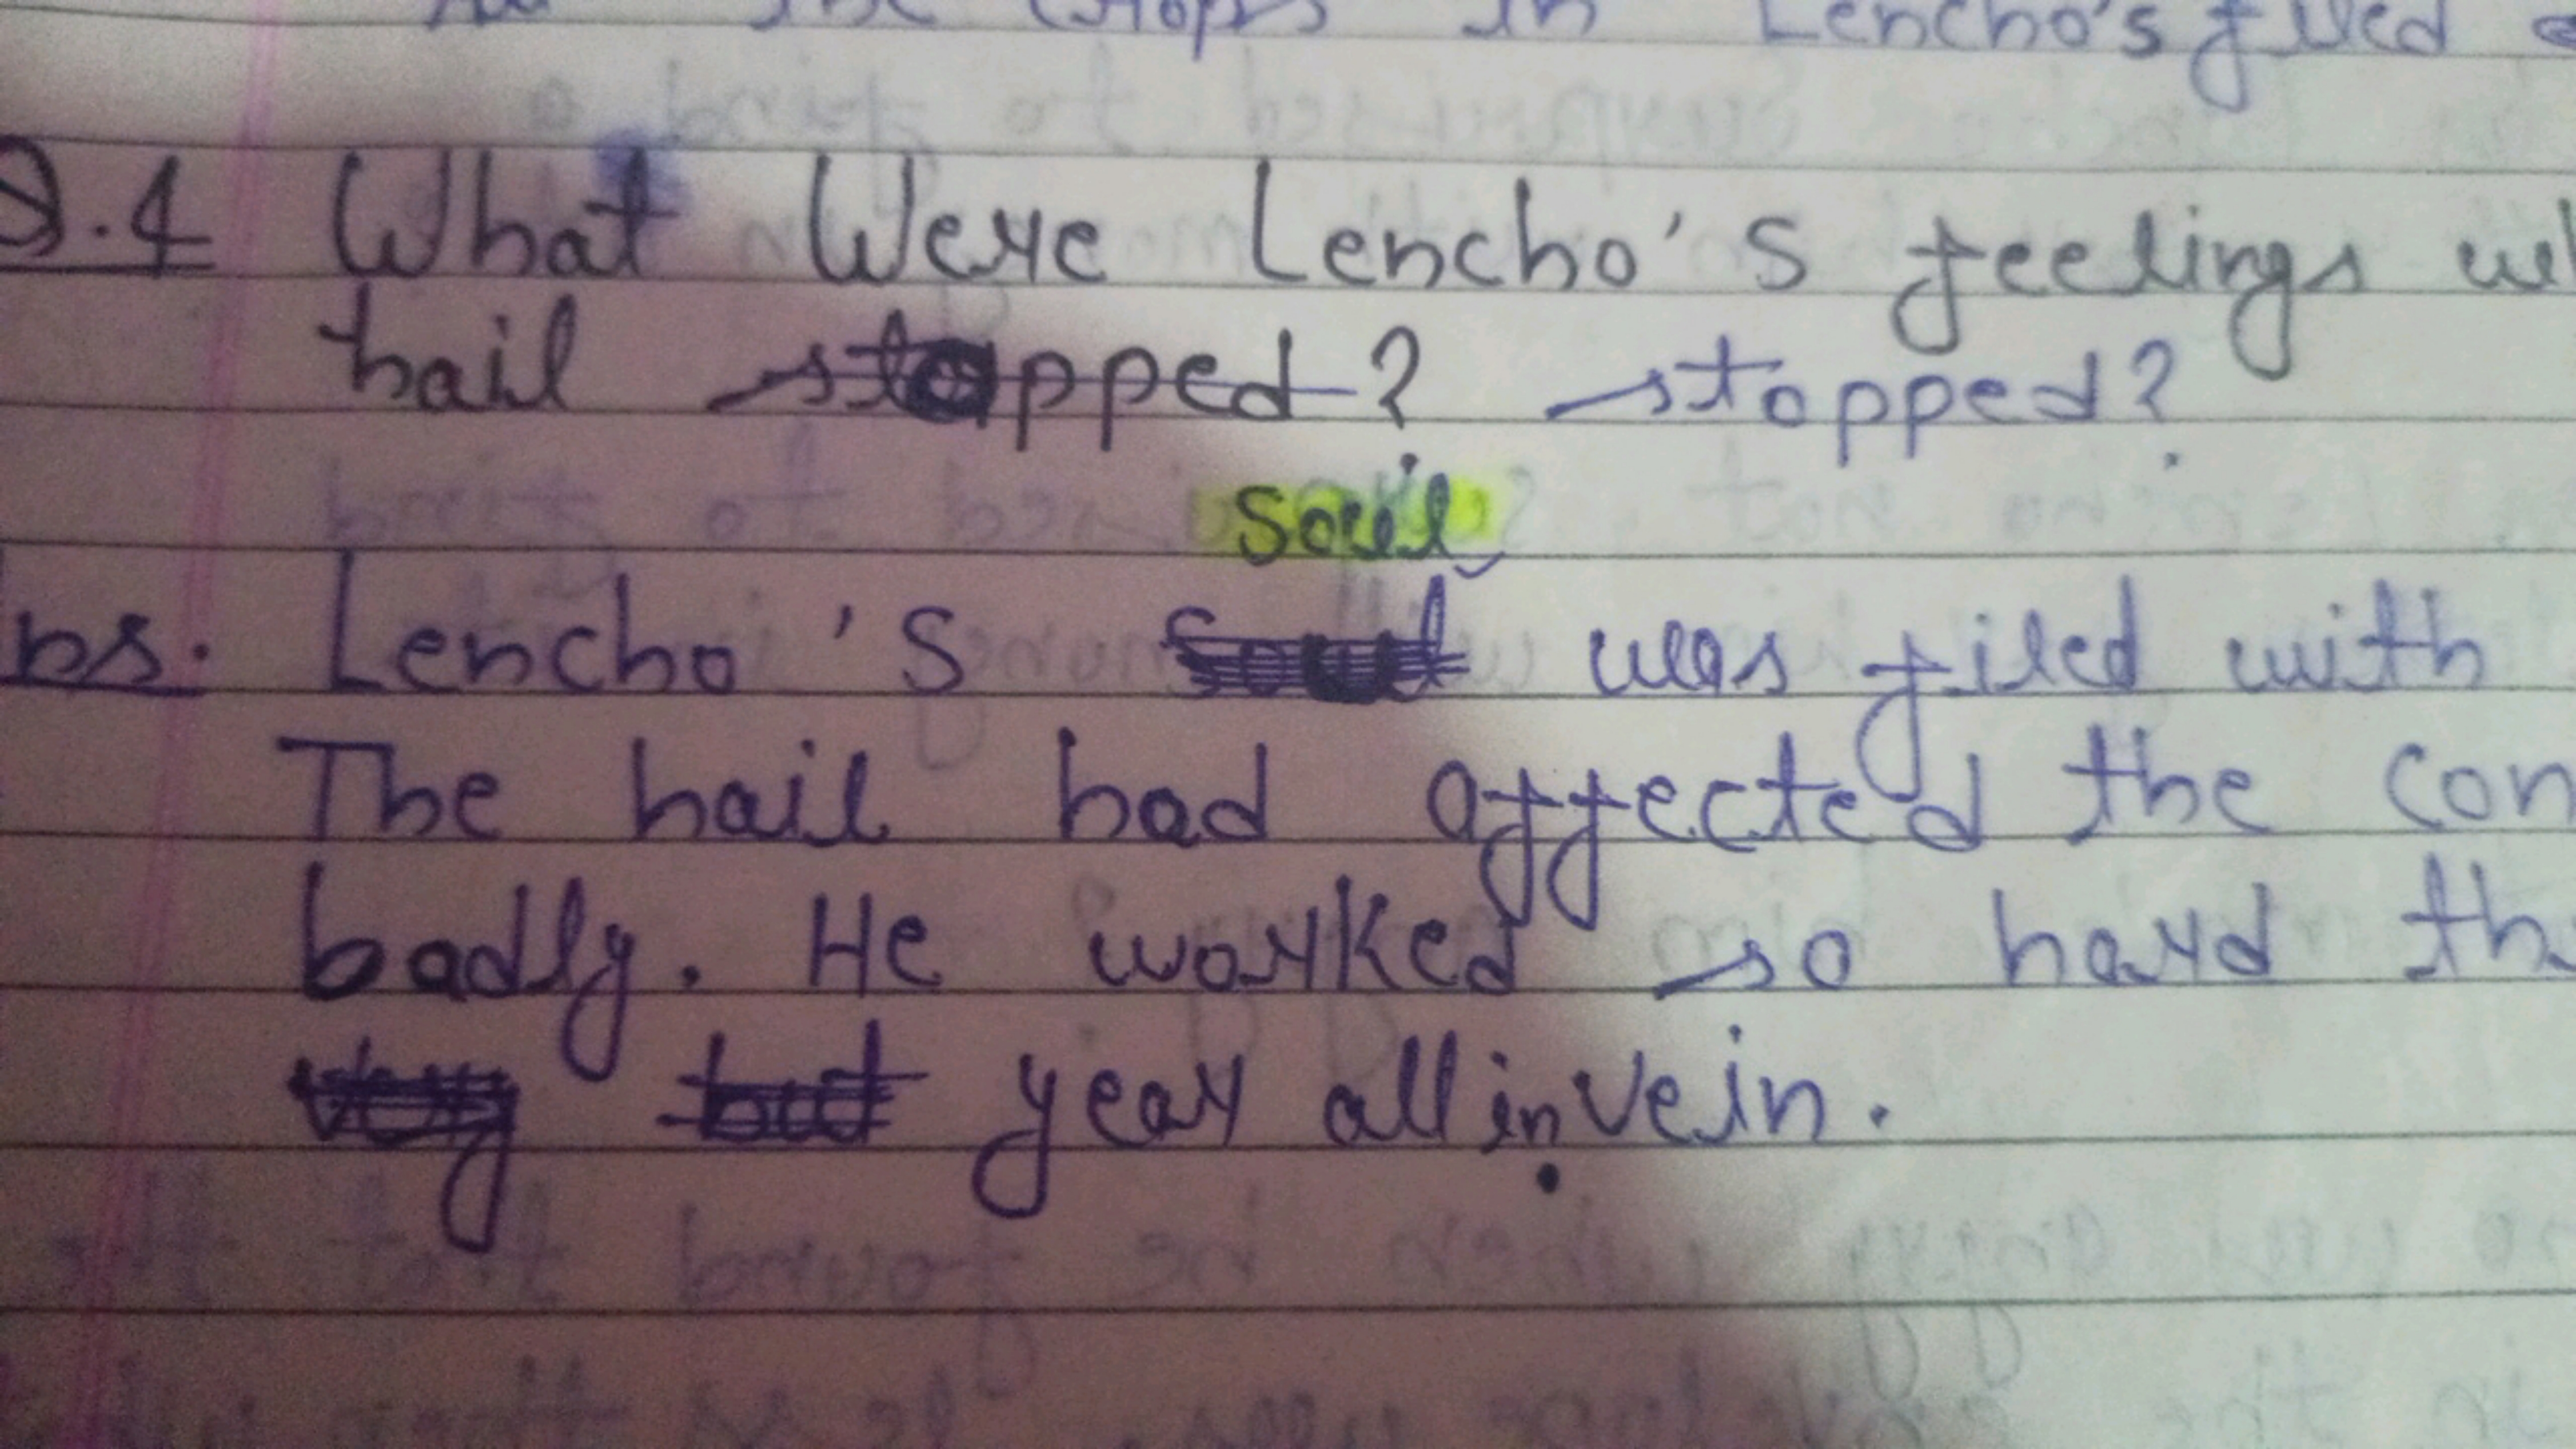 the crops in Lencho's filed
Q.4 What Were Lencho's feelings
hail stopped? stopped?
soul
ns. Lencho's was filed with
The hail had affected the
badly. He worked so hard
year all in vein.